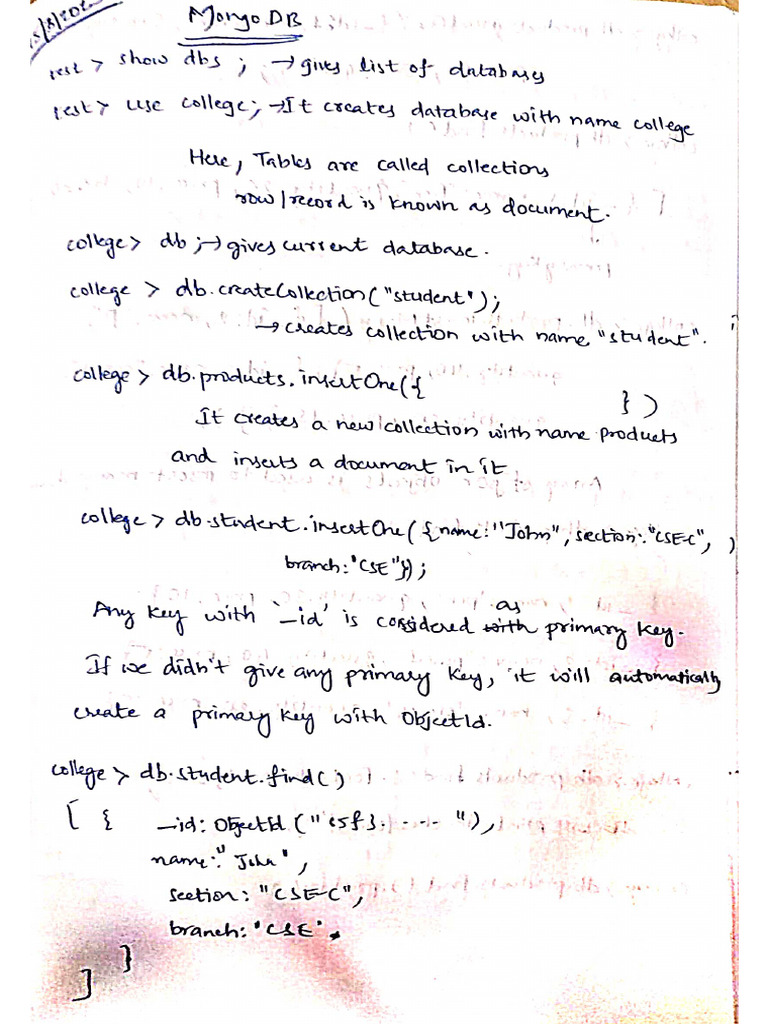 MongoDB
test > show dbs ; → gives list of databases
test > use college; → It creates database with name college
Here, Tables are called collections
row/record is known as document.
college > db ; → gives current database.
college > db.createCollection("student");
→ creates collection with name "student".
college > db.products.insertOne({ })
It creates a new collection with name products
and inserts a document in it.
college > db.student.insertOne({name: "John", section: "CSE-C",
branch: "CSE"});
Any key with '_id' is considered as primary key.
If we didn't give any primary key, it will automatically
create a primary key with ObjectId.
college > db.student.find()
[ {
_id: ObjectId ("65f3. - - - "),
name: "John",
section: "CSE-C",
branch: "CSE",
}
]